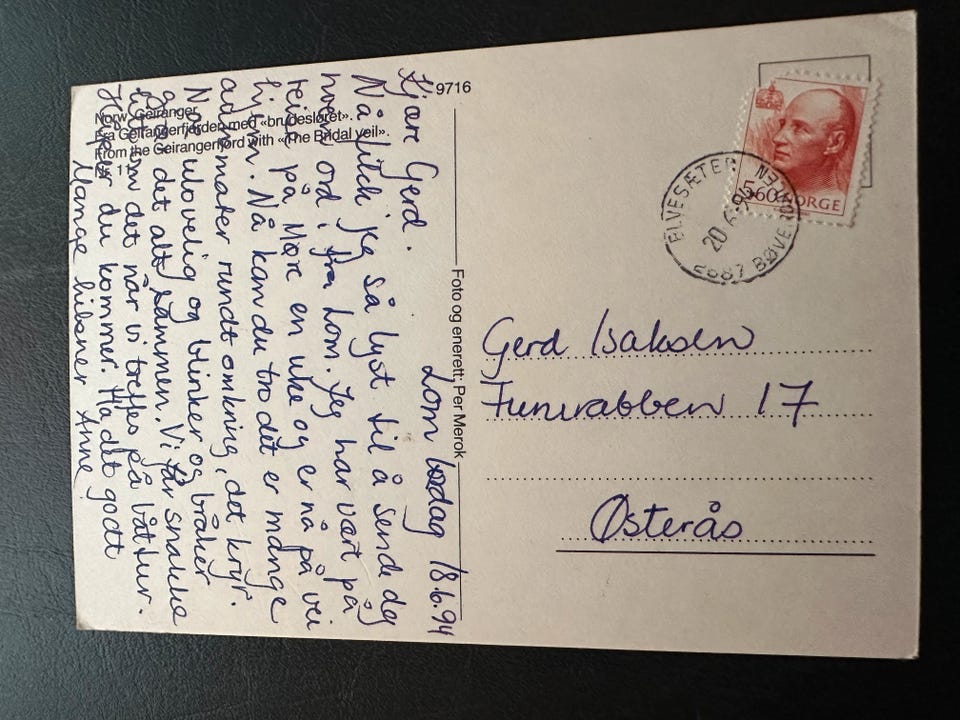 9716
Norw. Geiranger
Fra Geirangerfjorden med «brudesløret».
From the Geirangerfjord with «The Bridal veil».
Nr. 11
Lom lørdag 18.6.94
Kjære Gerd.
Nå fikk jeg så lyst til å sende deg
noen ord i fra Lom. Jeg har vært på
reise på Møre en uke og er nå på vei
hjem. Nå kan du tro det er mange
adm mater rundt omkring, det kryr.
Noe ulovelig og blinker og bråker
gjør det alt sammen. Vi får snakke
om det når vi treffes på båttur.
Håper du kommer. Ha det godt
Mange hilsner Anne
Foto og enerett: Per Merok
NORGE
560
ELVESÆTER
20.6.94
2687 BØVER
Gerd Isaksen
Furuvabben 17
Østerås